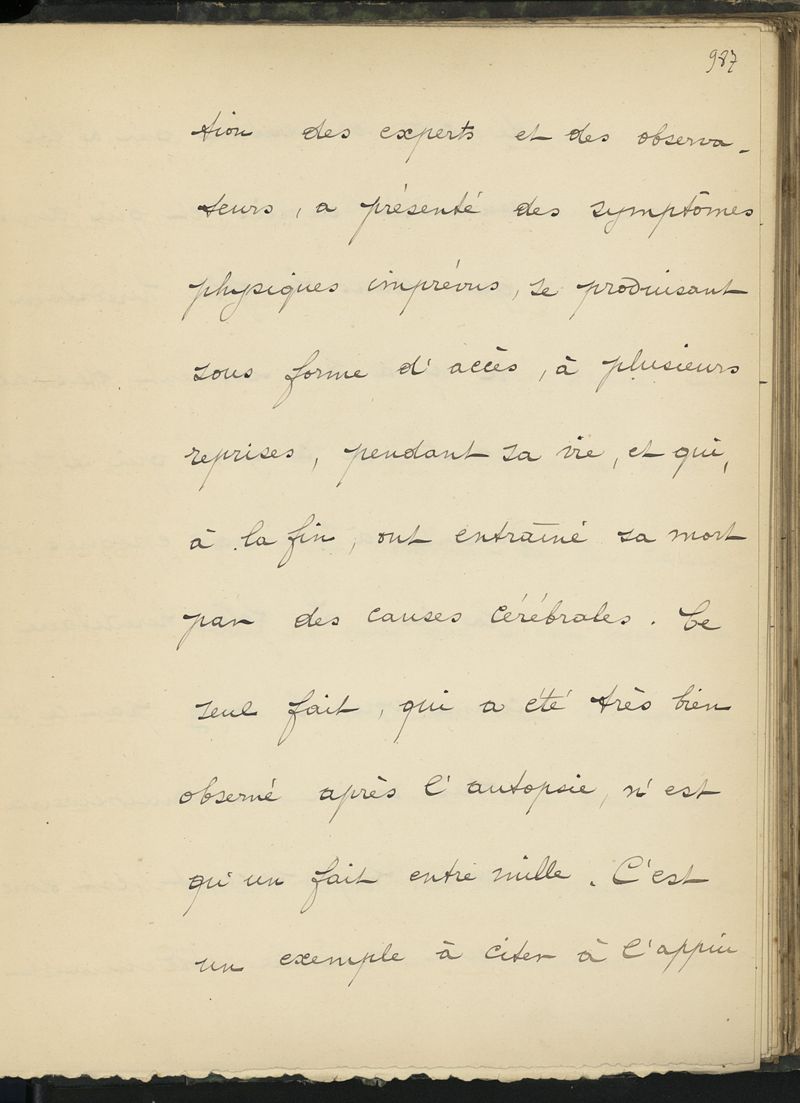 987
tion des experts et des observa-
teurs, a présenté des symptômes
physiques imprévus, se produisant
sous forme d'accès, à plusieurs
reprises, pendant sa vie, et qui,
à la fin, ont entraîné sa mort
par des causes cérébrales. Ce
seul fait, qui a été très bien
observé après l'autopsie, n'est
qu'un fait entre mille. C'est
un exemple à citer à l'appui